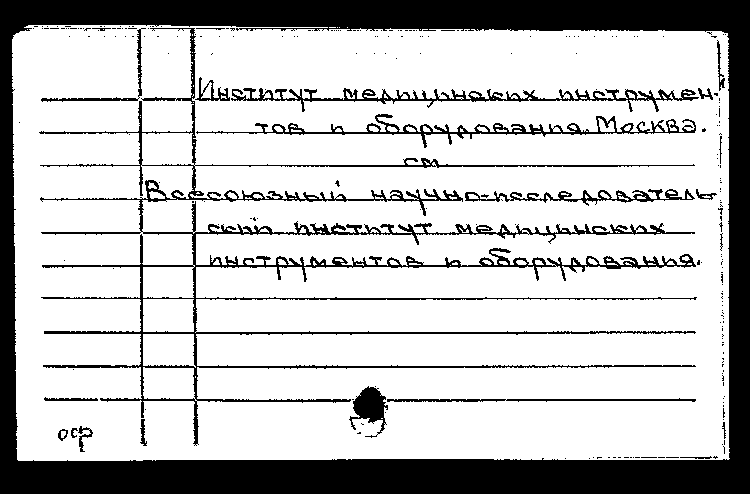 Институт медицинских инструмен-
тов и оборудования. Москва.
см.
Всесоюзный научно-исследователь-
ский институт медицинских
инструментов и оборудования.
оср